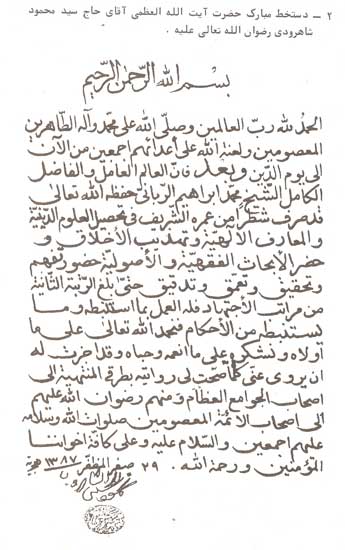 ۲ – دستخط مبارک حضرت آیت الله العظمی آقای حاج سید محمود
شاهرودی رضوان الله تعالی علیه .
بسم الله الرّحمن الرّحیم
الحمد لله ربّ العالمین وصلّی الله علی محمّد وآله الطّاهرین
المعصومین ولعنة الله علی اعدائهم اجمعین من الآن
الی یوم الدّین وبعد فانّ العالم العامل والفاضل
الکامل الشّیخ محمّد ابراهیم الرّبانی حفظه الله تعالی
قد صرف شطراً من عمره الشّریف فی تحصیل العلوم الدّینیّة
والمعارف الالهیّة وتهذیب الاخلاق و
حضر الابحاث الفقهیّة والاصولیّة حضور تفهّم
وتحقیق وتعمّق وتدقیق حتّی بلغ الرّتبة الثّانیة
من مراتب الاجتهاد فله العمل بما استنبطه وما
یستنبطه من الاحکام فنحمد الله تعالی علی ما
اولاه ونشکره علی ما انعمه وحباه وقد اجزت له
ان یروی عنّی کلّما صحّت لی روایته بطرقی المنتهیة الی
اصحاب الجوامع العظام ومنهم رضوان الله علیهم
الی اصحاب الائمّة المعصومین صلوات الله وسلامه
علیهم اجمعین والسّلام علیه وعلی کافّة اخواننا
المؤمنین ورحمة الله . ۲۹ صفر المظفّر ۱۳۸۷ هجریة